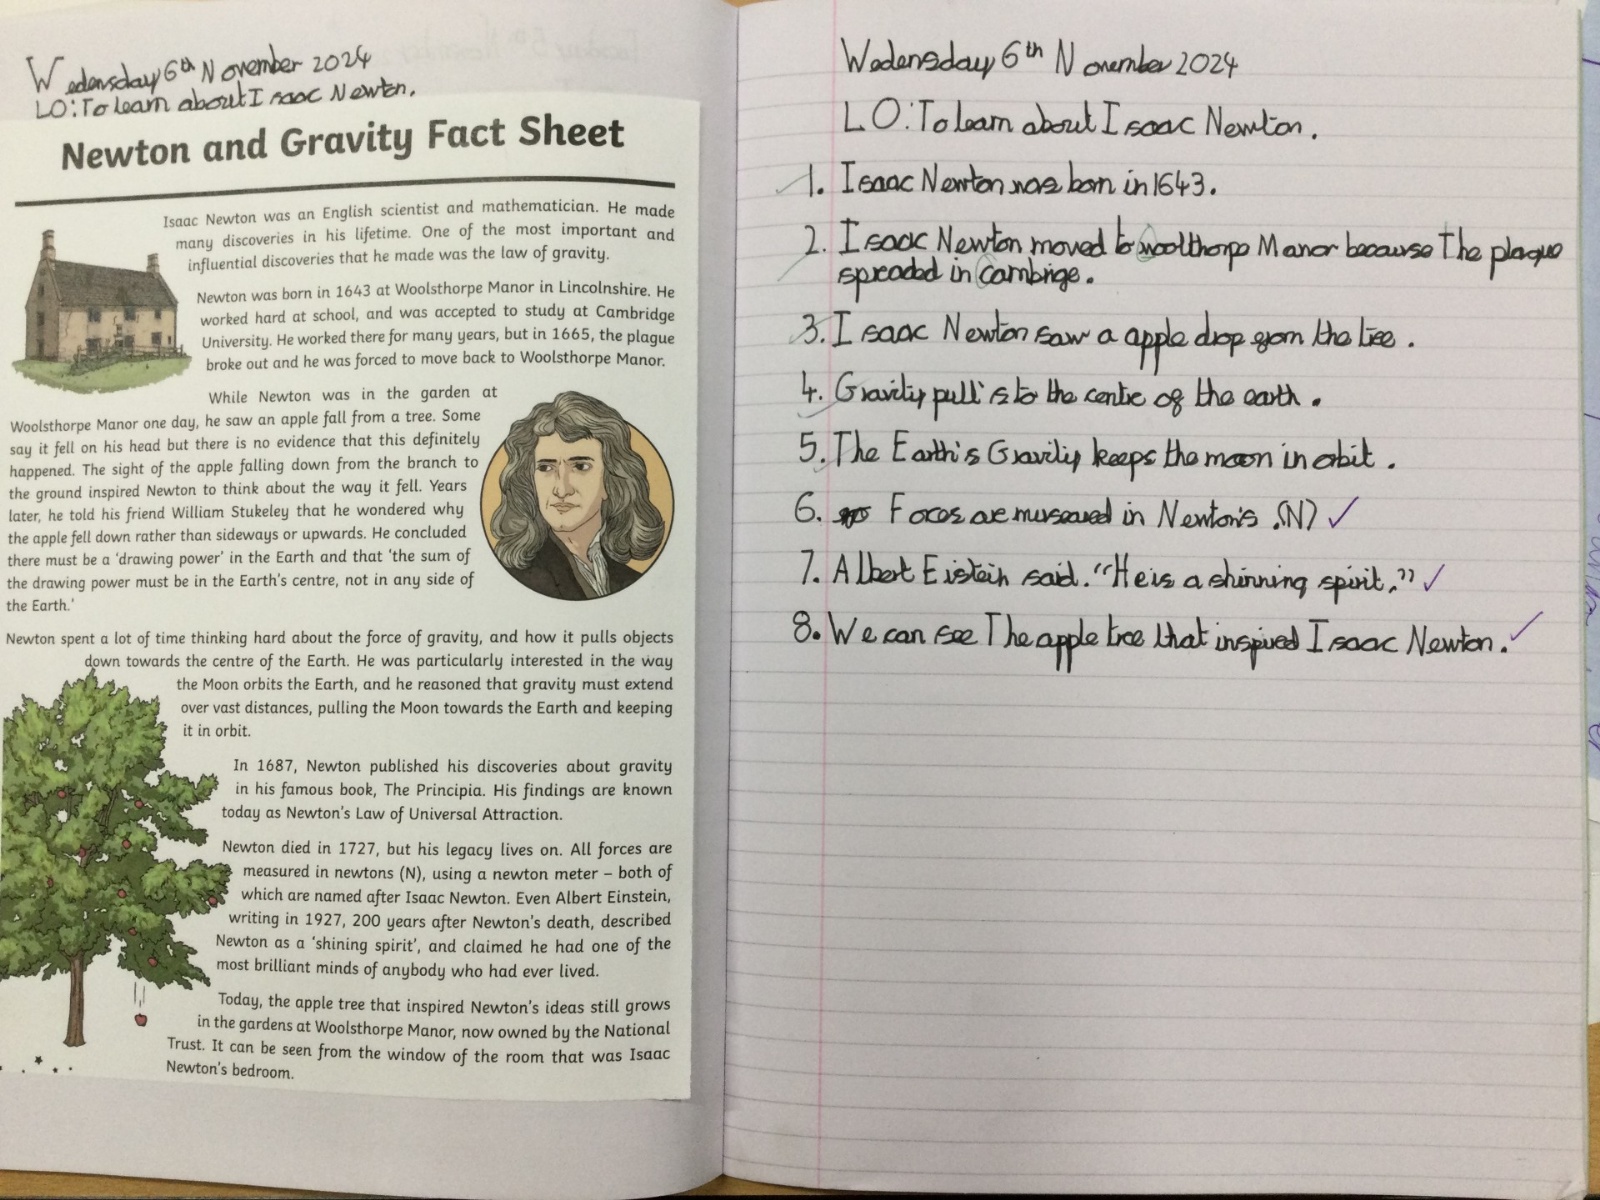 Wedensday 6th November 2024
LO: To learn about Isaac Newton.
Newton and Gravity Fact Sheet
Isaac Newton was an English scientist and mathematician. He made
many discoveries in his lifetime. One of the most important and
influential discoveries that he made was the law of gravity.
Newton was born in 1643 at Woolsthorpe Manor in Lincolnshire. He
worked hard at school, and was accepted to study at Cambridge
University. He worked there for many years, but in 1665, the plague
broke out and he was forced to move back to Woolsthorpe Manor.
While Newton was in the garden at
Woolsthorpe Manor one day, he saw an apple fall from a tree. Some
say it fell on his head but there is no evidence that this definitely
happened. The sight of the apple falling down from the branch to
the ground inspired Newton to think about the way it fell. Years
later, he told his friend William Stukeley that he wondered why
the apple fell down rather than sideways or upwards. He concluded
there must be a 'drawing power' in the Earth and that 'the sum of
the drawing power must be in the Earth's centre, not in any side of
the Earth.'
Newton spent a lot of time thinking hard about the force of gravity, and how it pulls objects
down towards the centre of the Earth. He was particularly interested in the way
the Moon orbits the Earth, and he reasoned that gravity must extend
over vast distances, pulling the Moon towards the Earth and keeping
it in orbit.
In 1687, Newton published his discoveries about gravity
in his famous book, The Principia. His findings are known
today as Newton's Law of Universal Attraction.
Newton died in 1727, but his legacy lives on. All forces are
measured in newtons (N), using a newton meter – both of
which are named after Isaac Newton. Even Albert Einstein,
writing in 1927, 200 years after Newton's death, described
Newton as a 'shining spirit', and claimed he had one of the
most brilliant minds of anybody who had ever lived.
Today, the apple tree that inspired Newton's ideas still grows
in the gardens at Woolsthorpe Manor, now owned by the National
Trust. It can be seen from the window of the room that was Isaac
Newton's bedroom.
Wedensday 6th November 2024
LO: To learn about Isaac Newton.
1. Isaac Newton was born in 1643.
2. Isaac Newton moved to woolthorpe Manor because The plague
spreaded in Cambrige.
3. Isaac Newton saw a apple drop from the tree.
4. Gravitiy pull's to the centre of the earth.
5. The Earth's Gravitiy keeps the moon in orbit.
6. Forces are museared in Newton's .(N)
7. Albert Eistein said. "He is a shinning spirit."
8. We can see The apple tree that inspired Isaac Newton.